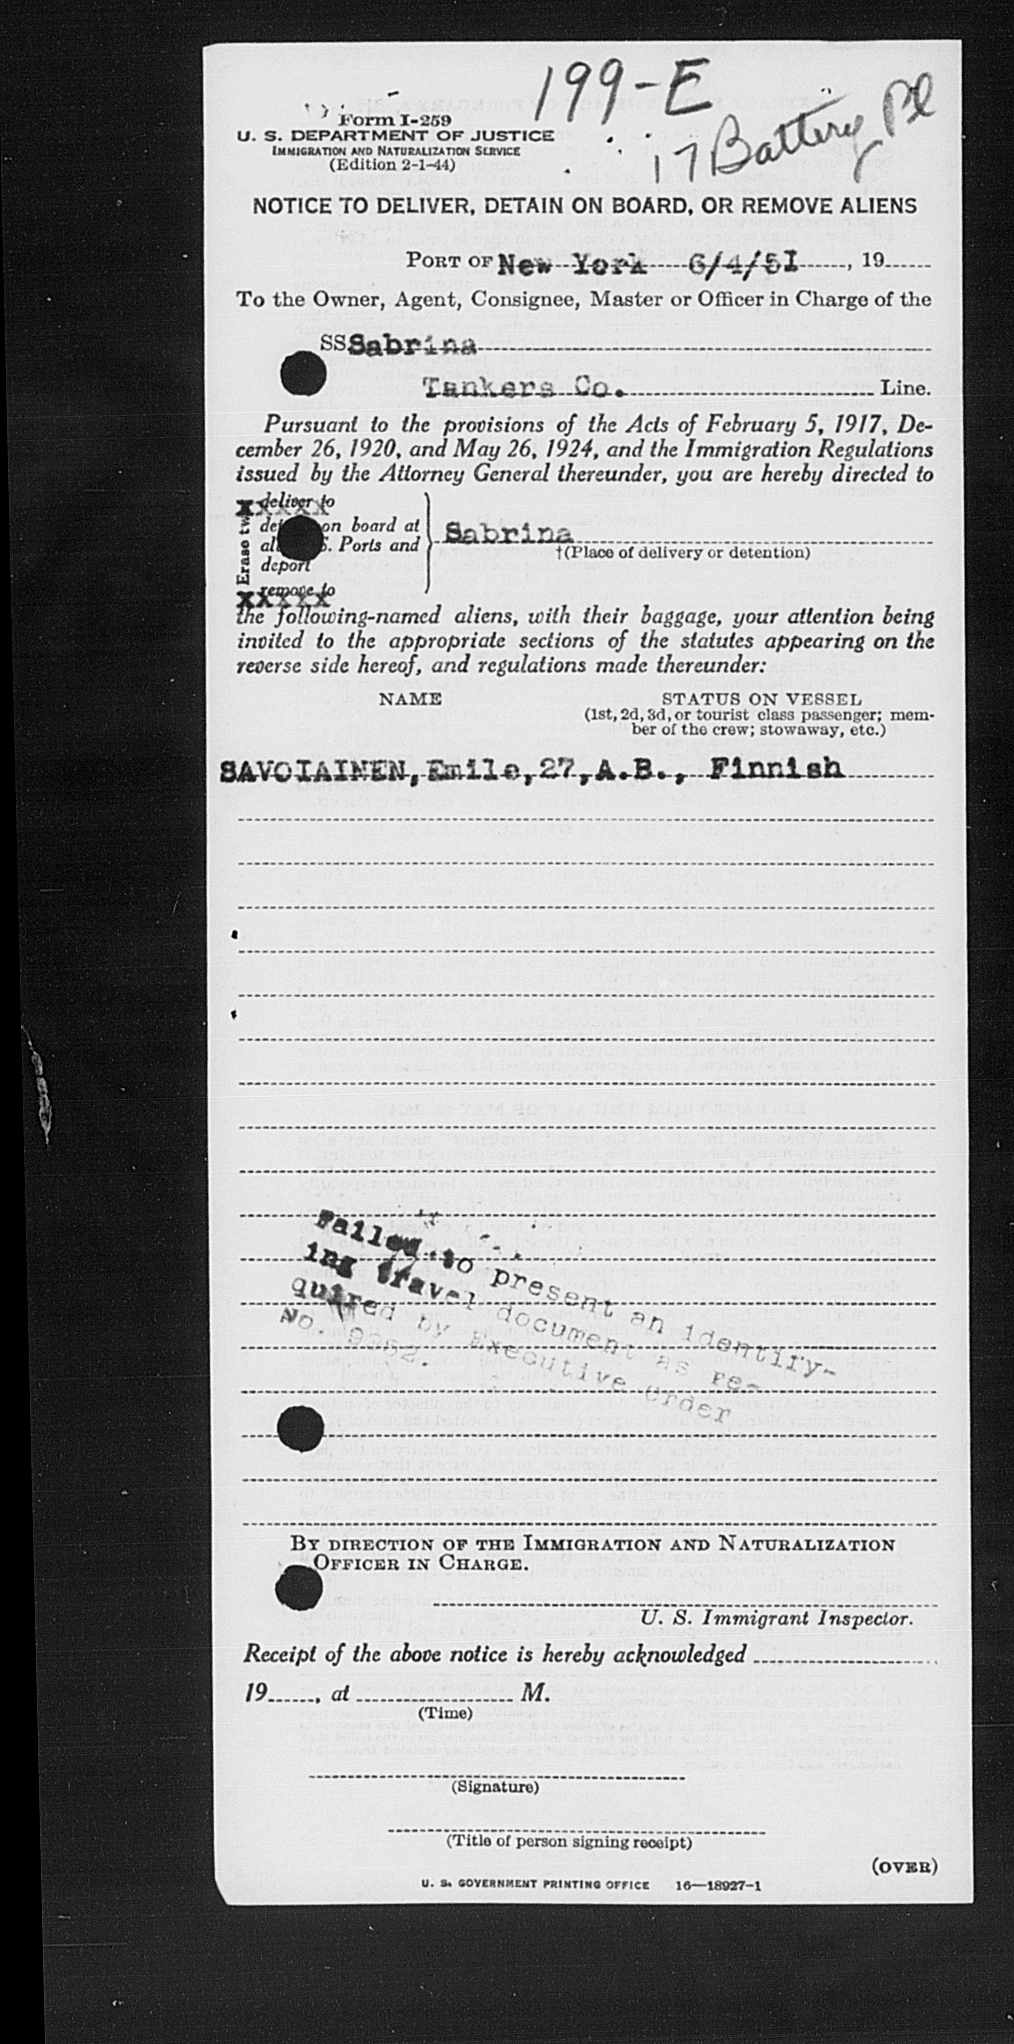 199-E
17 Battery Pl
Form I-259
U. S. DEPARTMENT OF JUSTICE
IMMIGRATION AND NATURALIZATION SERVICE
(Edition 2-1-44)
NOTICE TO DELIVER, DETAIN ON BOARD, OR REMOVE ALIENS
PORT OF New York 6/4/51, 19
To the Owner, Agent, Consignee, Master or Officer in Charge of the
SS Sabrina
Tankers Co. Line.
Pursuant to the provisions of the Acts of February 5, 1917, De-
cember 26, 1920, and May 26, 1924, and the Immigration Regulations
issued by the Attorney General thereunder, you are hereby directed to
Erase two
xxxxx deliver to
on board at
Ports and
deport
Sabrina
†(Place of delivery or detention)
xxxxx remove to
the following-named aliens, with their baggage, your attention being
invited to the appropriate sections of the statutes appearing on the
reverse side hereof, and regulations made thereunder:
NAME STATUS ON VESSEL
(1st, 2d, 3d, or tourist class passenger; mem-
ber of the crew; stowaway, etc.)
SAVOIAINEN, Emile, 27, A.B., Finnish
Failed to present an identify-
ing travel document as re-
quired by Executive Order
No. 9352.
BY DIRECTION OF THE IMMIGRATION AND NATURALIZATION
OFFICER IN CHARGE.
U. S. Immigrant Inspector.
Receipt of the above notice is hereby acknowledged
19, at M.
(Time)
(Signature)
(Title of person signing receipt)
(OVER)
U. S. GOVERNMENT PRINTING OFFICE 16—18927-1